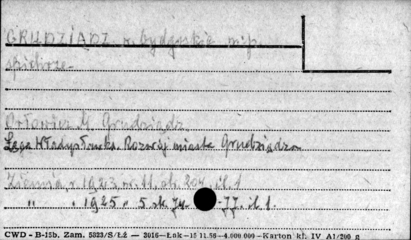 GRUDZIĄDZ, w. bydgoskie
spichrze.
Orłowicz M. Grudziądz
Łęga Władysław ks. Rozwój miasta Grudziądza
Ziemia, r. 1923 nr. 11, str. 204, il. 1
" " 1925 " 5 str. 74-77. il. 1.
CWD - B-15b. Zam. 5823/S/Łż — 3016—Łąk—15 11.56—4.000.000—Karton kl. IV A1/200 g